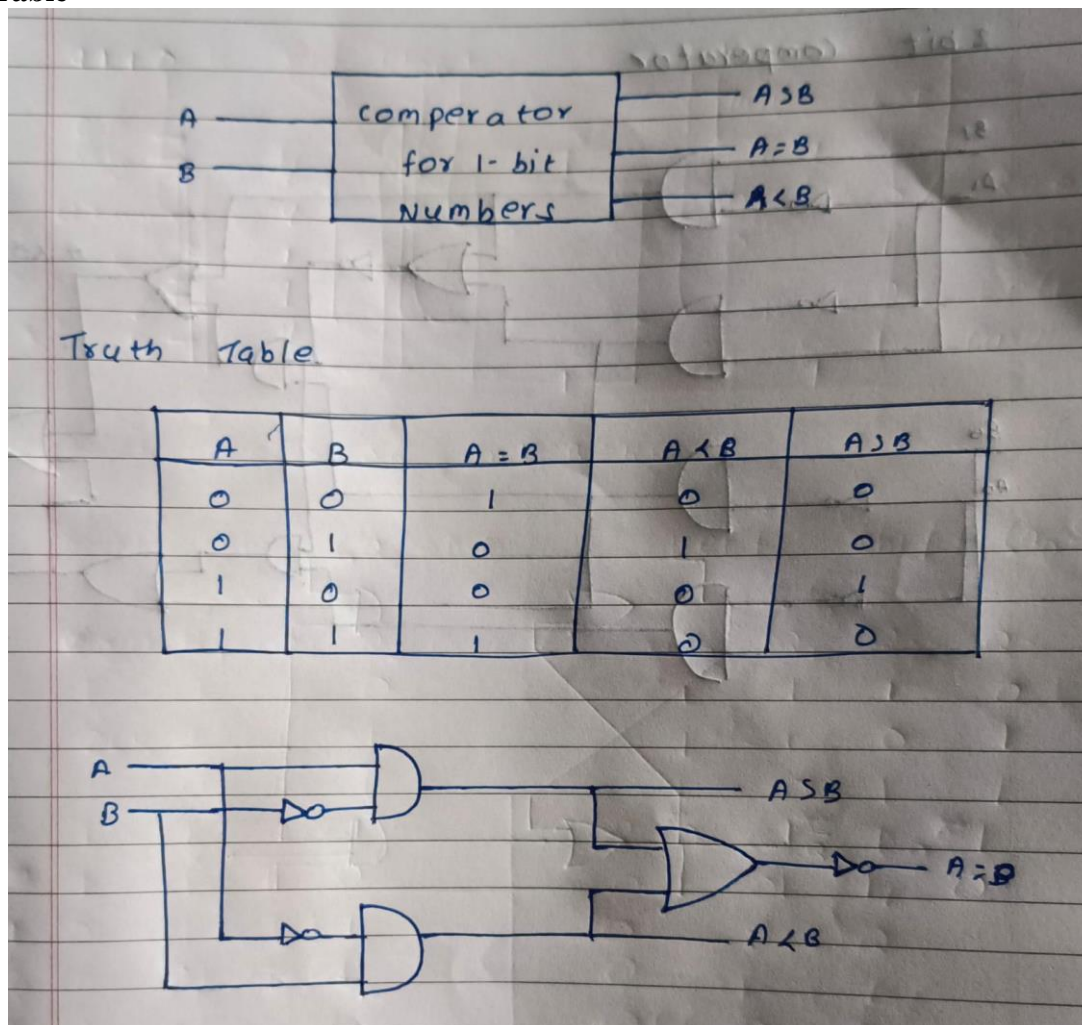 A
B
comperator
for 1-bit
Numbers
A>B
A=B
A<B
Truth Table
A B A=B A<B A>B
0 0 1 0 0
0 1 0 1 0
1 0 0 0 1
1 1 1 0 0
A
B
A>B
A=B
A<B